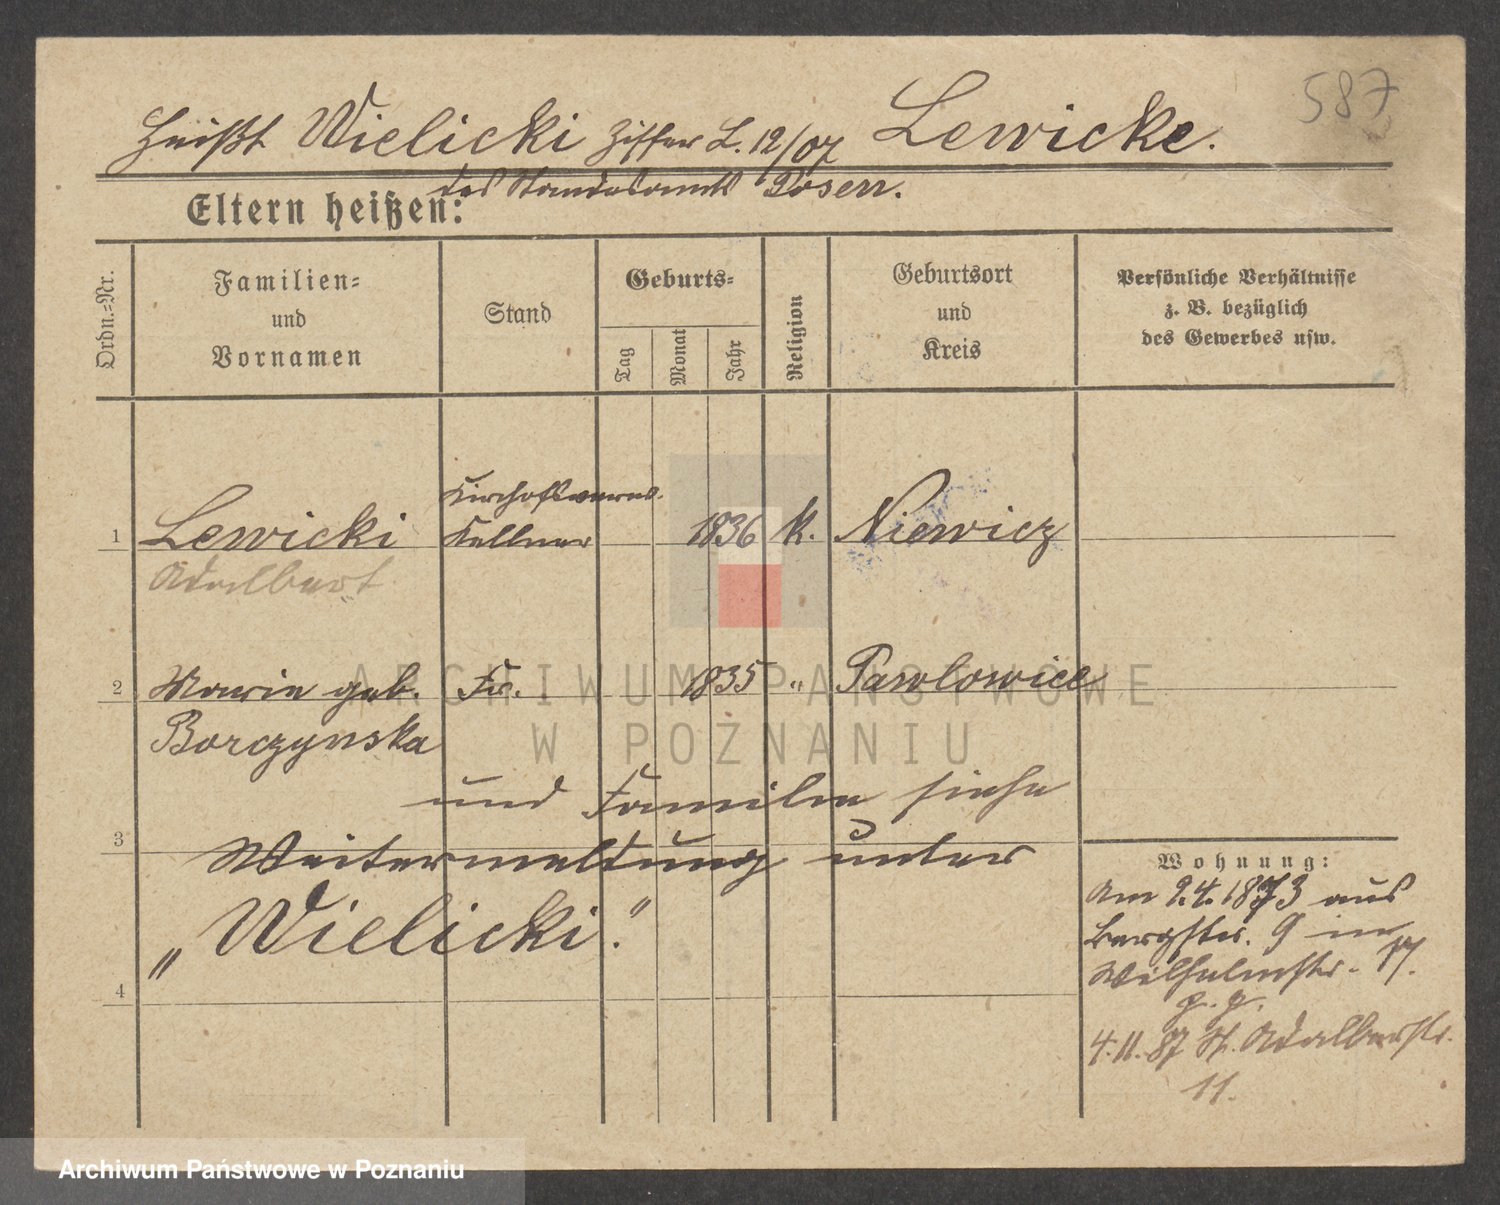 587
Heißt Wielicki Ziffer L. 12/07 Lewicke.
des Standesamts Posen.
Eltern heißen:
Ordn.-Nr.
Familien- und Vornamen
Stand
Geburts-
Tag
Monat
Jahr
Religion
Geburtsort und Kreis
Persönliche Verhältnisse z. B. bezüglich des Gewerbes usw.
1 Lewicki Kellner 1836 k. Niewicz
Adalbert
2 Marie geb. Fr. 1835 " Pawlowice
Borczynska
und Familie siehe
3 Weitermeldung unter
„Wielicki."
4
Wohnung:
Am 9.4.1873 aus
Bergstr. 9 in
Wilhelmstr. 17.
4.11.87 St. Adalbertstr.
11.
ARCHIWUM PAŃSTWOWE
W POZNANIU
Archiwum Państwowe w Poznaniu